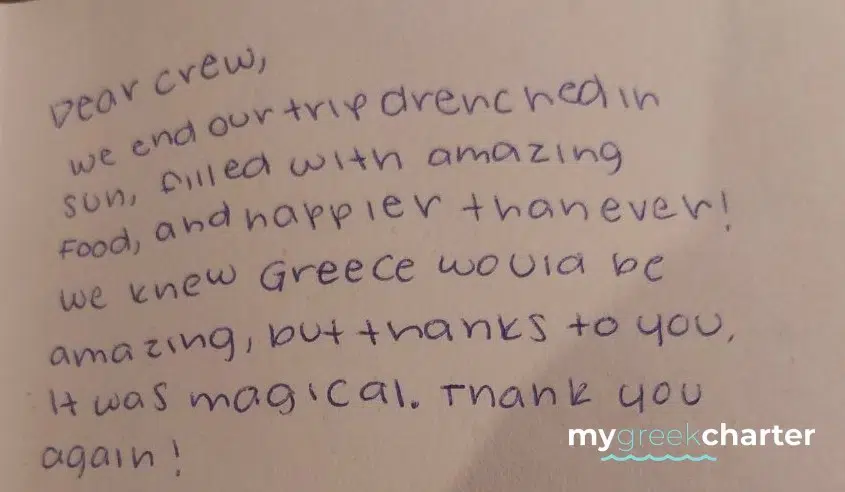 Dear crew,
we end our trip drenched in
sun, filled with amazing
food, and happier than ever!
we knew Greece would be
amazing, but thanks to you,
it was magical. Thank you
again!
mygreekcharter